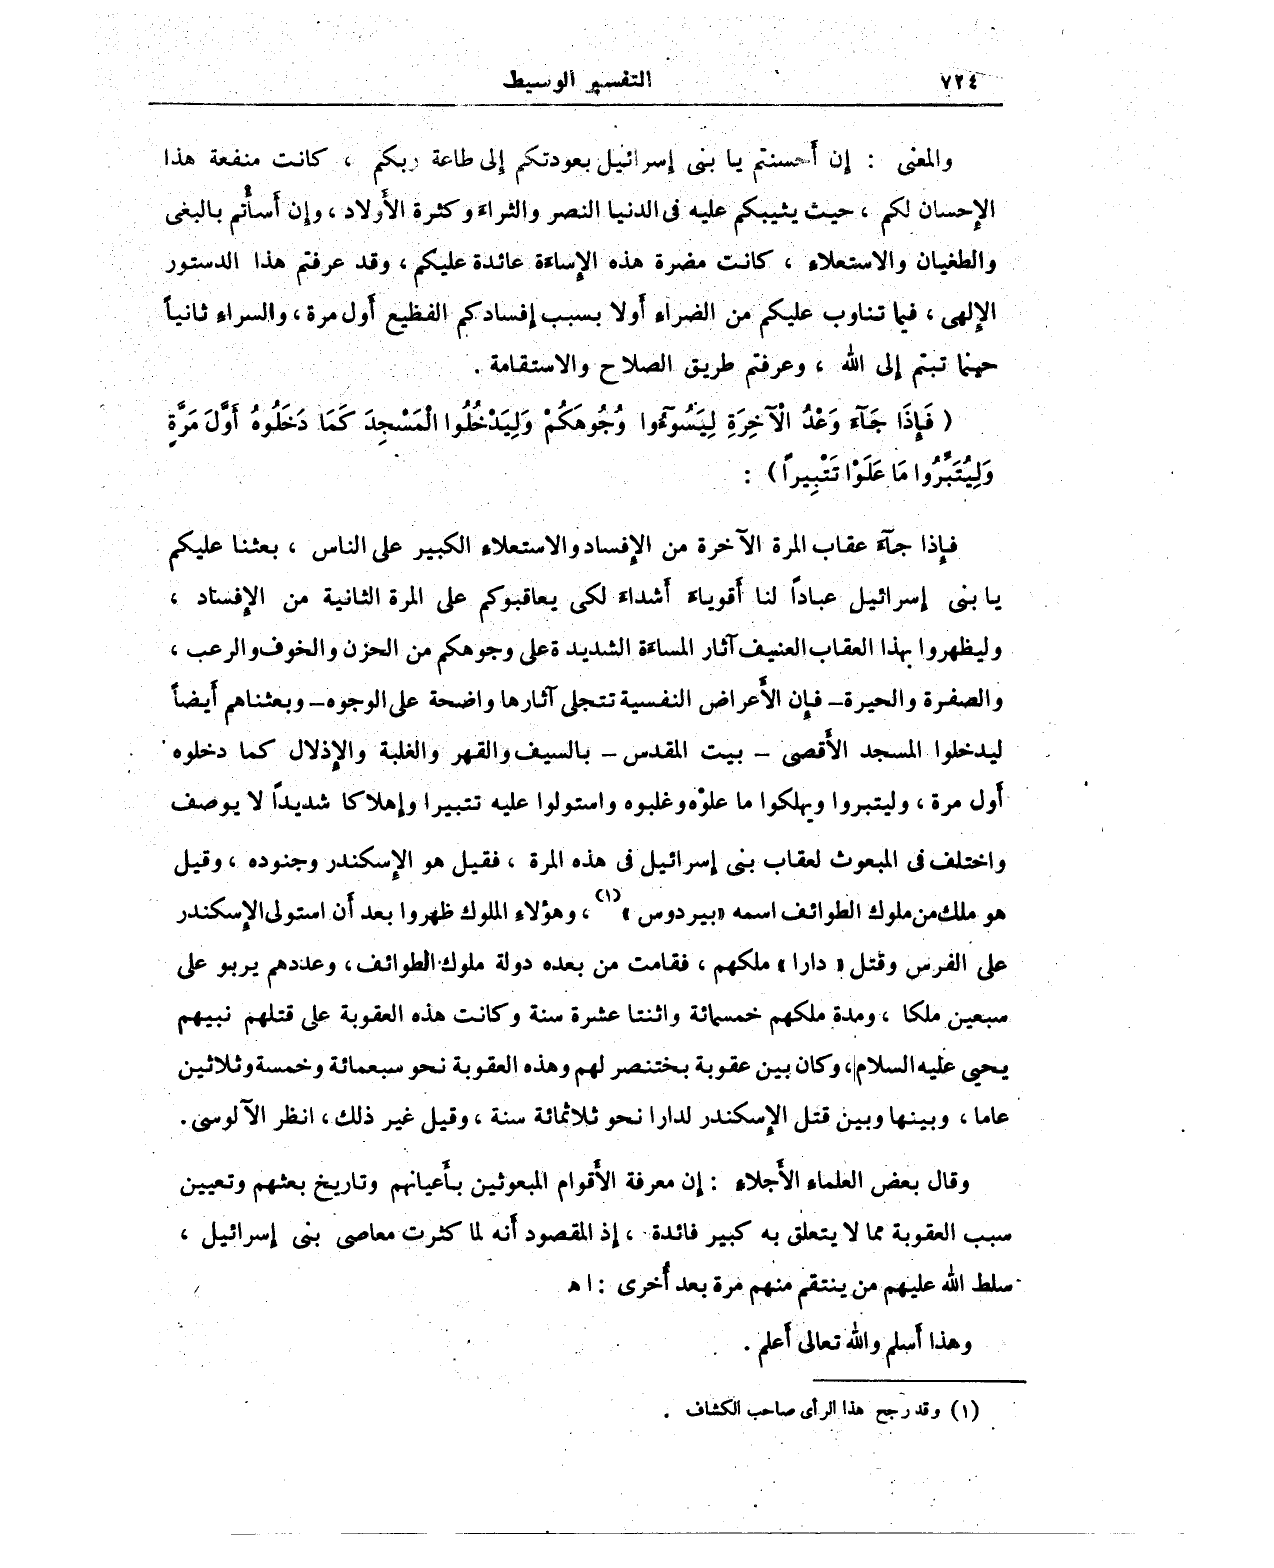 ٧٢٤ التفسير الوسيط
والمعنى : إن أحسنتم يا بنى إسرائيل بعودتكم إلى طاعة ربكم ، كانت منفعة هذا
الإحسان لكم ، حيث يثيبكم عليه فى الدنيا النصر والثراء وكثرة الأولاد ، وإن أسأتم بالبغى
والطغيان والاستعلاء ، كانت مضرة هذه الإساءة عائدة عليكم ، وقد عرفتم هذا الدستور
الإلهى ، فيما تناوب عليكم من الضراء أولا بسبب إفسادكم الفظيع أول مرة ، والسراء ثانياً
حينما تبتم إلى الله ، وعرفتم طريق الصلاح والاستقامة .
( فَإِذَا جَآءَ وَعْدُ الْآخِرَةِ لِيَسُوٓءُوا وُجُوهَكُمْ وَلِيَدْخُلُوا الْمَسْجِدَ كَمَا دَخَلُوهُ أَوَّلَ مَرَّةٍ
وَلِيُتَبِّرُوا مَا عَلَوْا تَتْبِيراً ) :
فإذا جآء عقاب المرة الآخرة من الإفساد والاستعلاء الكبير على الناس ، بعثنا عليكم
يا بنى إسرائيل عباداً لنا أقوياء أشداء لكى يعاقبوكم على المرة الثانية من الإفساد ،
وليظهروا بهذا العقاب العنيف آثار المساءة الشديدة على وجوهكم من الحزن والخوف والرعب ،
والصفرة والحيرة – فإن الأعراض النفسية تتجلى آثارها واضحة على الوجوه – وبعثناهم أيضاً
ليدخلوا المسجد الأقصى – بيت المقدس – بالسيف والقهر والغلبة والإذلال كما دخلوه
أول مرة ، وليتبروا ويهلكوا ما علوْه وغلبوه واستولوا عليه تتبيرا وإهلاكا شديداً لا يوصف
واختلف فى المبعوث لعقاب بنى إسرائيل فى هذه المرة ، فقيل هو الإسكندر وجنوده ، وقيل
هو ملك من ملوك الطوائف اسمه «بيردوس »(١) ، وهؤلاء الملوك ظهروا بعد أن استولى الإسكندر
على الفرس وقتل « دارا » ملكهم ، فقامت من بعده دولة ملوك الطوائف ، وعددهم يربو على
سبعين ملكا ، ومدة ملكهم خمسمائة واثنتا عشرة سنة وكانت هذه العقوبة على قتلهم نبيهم
يحيى عليه السلام ، وكان بين عقوبة بختنصر لهم وهذه العقوبة نحو سبعمائة وخمسة وثلاثين
عاما ، وبينها وبين قتل الإسكندر لدارا نحو ثلاثمائة سنة ، وقيل غير ذلك ، انظر الآلوسى .
وقال بعض العلماء الأجلاء : إن معرفة الأقوام المبعوثين بأعيانهم وتاريخ بعثهم وتعيين
سبب العقوبة مما لا يتعلق به كبير فائدة ، إذ المقصود أنه لما كثرت معاصى بنى إسرائيل ،
سلط الله عليهم من ينتقم منهم مرة بعد أُخرى : ا ه
وهذا أسلم والله تعالى أعلم .
(١) وقد رجح هذا الرأى صاحب الكشاف .